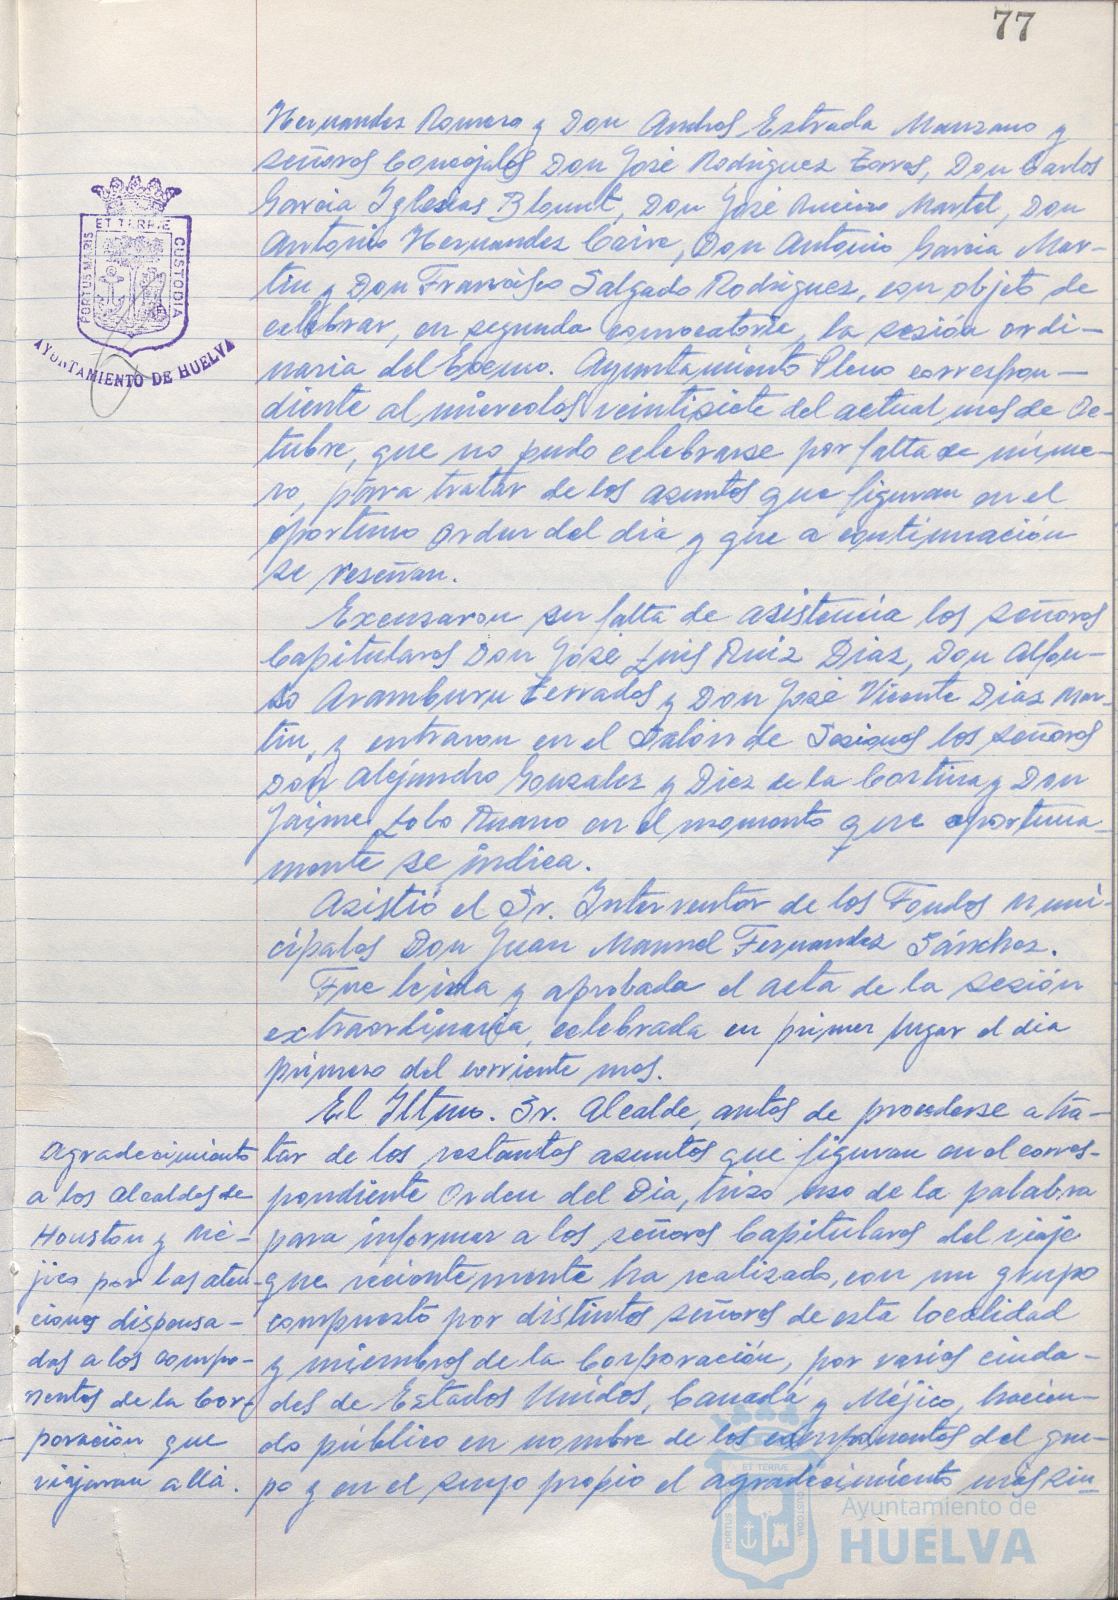 77
Hernandez Romero y Don Andres Estrada Manzano y
señores Concejales Don José Rodriguez Torres, Don Carlos
Garcia Iglesias Blount, Don José Martel, Don
Antonio Hernandez Caire, Don Antonio Garcia Mar-
tin y Don Francisco Salgado Rodriguez, con objeto de
celebrar, en segunda convocatoria, la sesión ordi-
naria del Excmo. Ayuntamiento Pleno correspon-
diente al miercoles veintisiete del actual mes de Oc-
tubre, que no pudo celebrarse por falta de núme-
ro, para tratar de los asuntos que figuran en el
oportuno Orden del dia y que a continuación
se reseñan.
Excusaron su falta de asistencia los señores
Capitulares Don José Luis Ruiz Diaz, Don Alfon-
so Aramburu Terrades y Don José Vicente Diaz Mar-
tin, y entraron en el Salón de Sesiones los señores
Don Alejandro Gonzalez y Diez de la Cortina y Don
Jaime Lobo Ruano en el momento que oportuna-
mente se indica.
Asistió el Sr. Interventor de los Fondos Muni-
cipales Don Juan Manuel Fernandez Sánchez.
Fue leida y aprobada el acta de la sesión
extraordinaria, celebrada en primer lugar el dia
primero del corriente mes.
El Iltmo. Sr. Alcalde, antes de procederse a tra-
tar de los restantes asuntos que figuran en el corres-
pondiente Orden del Dia, hizo uso de la palabra
para informar a los señores Capitulares del viaje
que recientemente ha realizado, con un grupo
compuesto por distintos señores de esta localidad
y miembros de la Corporación, por varias ciuda-
des de Estados Unidos, Canadá y Méjico, hacien-
do público en nombre de los componentes del gru-
po y en el suyo propio el agradecimiento mas sin-
Agradecimiento
a los Alcaldes de
Houston y Mé-
jico por las aten-
ciones dispensa-
das a los compo-
nentes de la Cor-
poración que
viajaron allá.
ET TERRAE
PORTUS MARIS
CUSTODIA
AYUNTAMIENTO DE HUELVA
ET TERRAE
PORTUS MARIS
CUSTODIA
Ayuntamiento de
HUELVA